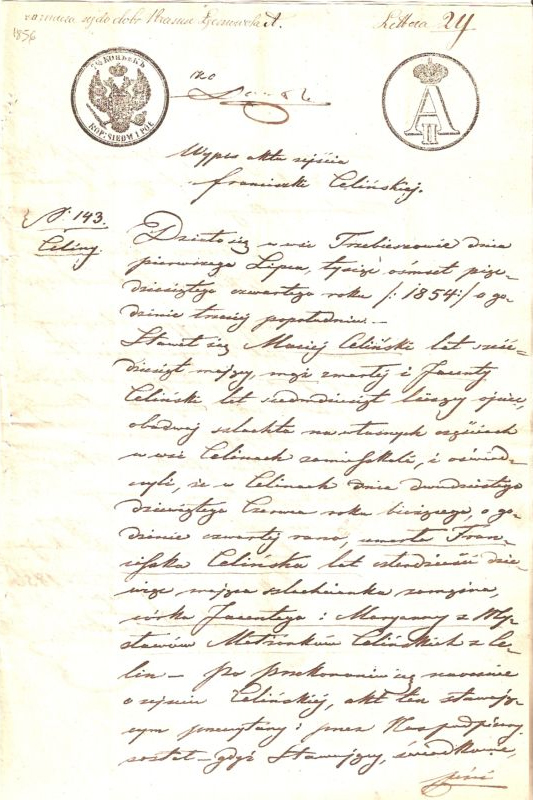 1856
24
КОПѢЕКЪ
KOP: SIEDM I POŁ
A
II
Wypis aktu zejścia
Franciszki Celińskiej.
N. 143.
Celiny.
Działo się w wsi Trzebieszowie dnia
pierwszego Lipca, tysiąc ośmset pięć-
dziesiątego czwartego roku /: 1854 :/ o go-
dzinie trzeciej popołudniu. –
Stawił się Maciej Celiński lat sześć-
dziesiąt mający, mąż zmarłej i Jacenty
Celiński lat siedmdziesiąt liczący ojciec,
obadwaj szlachta na własnych częściach
w wsi Celinach zamieszkali, i oświad-
czyli, że w Celinach dnia dwudziestego
dziewiątego Czerwca roku bieżącego, o go-
dzinie czwartej rano, umarła Fran-
ciszka Celińska lat czterdzieści dzie-
więć mająca szlachcianka zamężna,
córka Jacentego i Maryanny z Wy-
Małżonków Celińskich z Ce-
lin – po przekonaniu się naocznie
o zejściu Celińskiej, akt ten stawają-
cym przeczytany i przez Nas podpisany
został – gdyż Stawający, świadkowie,
pisać